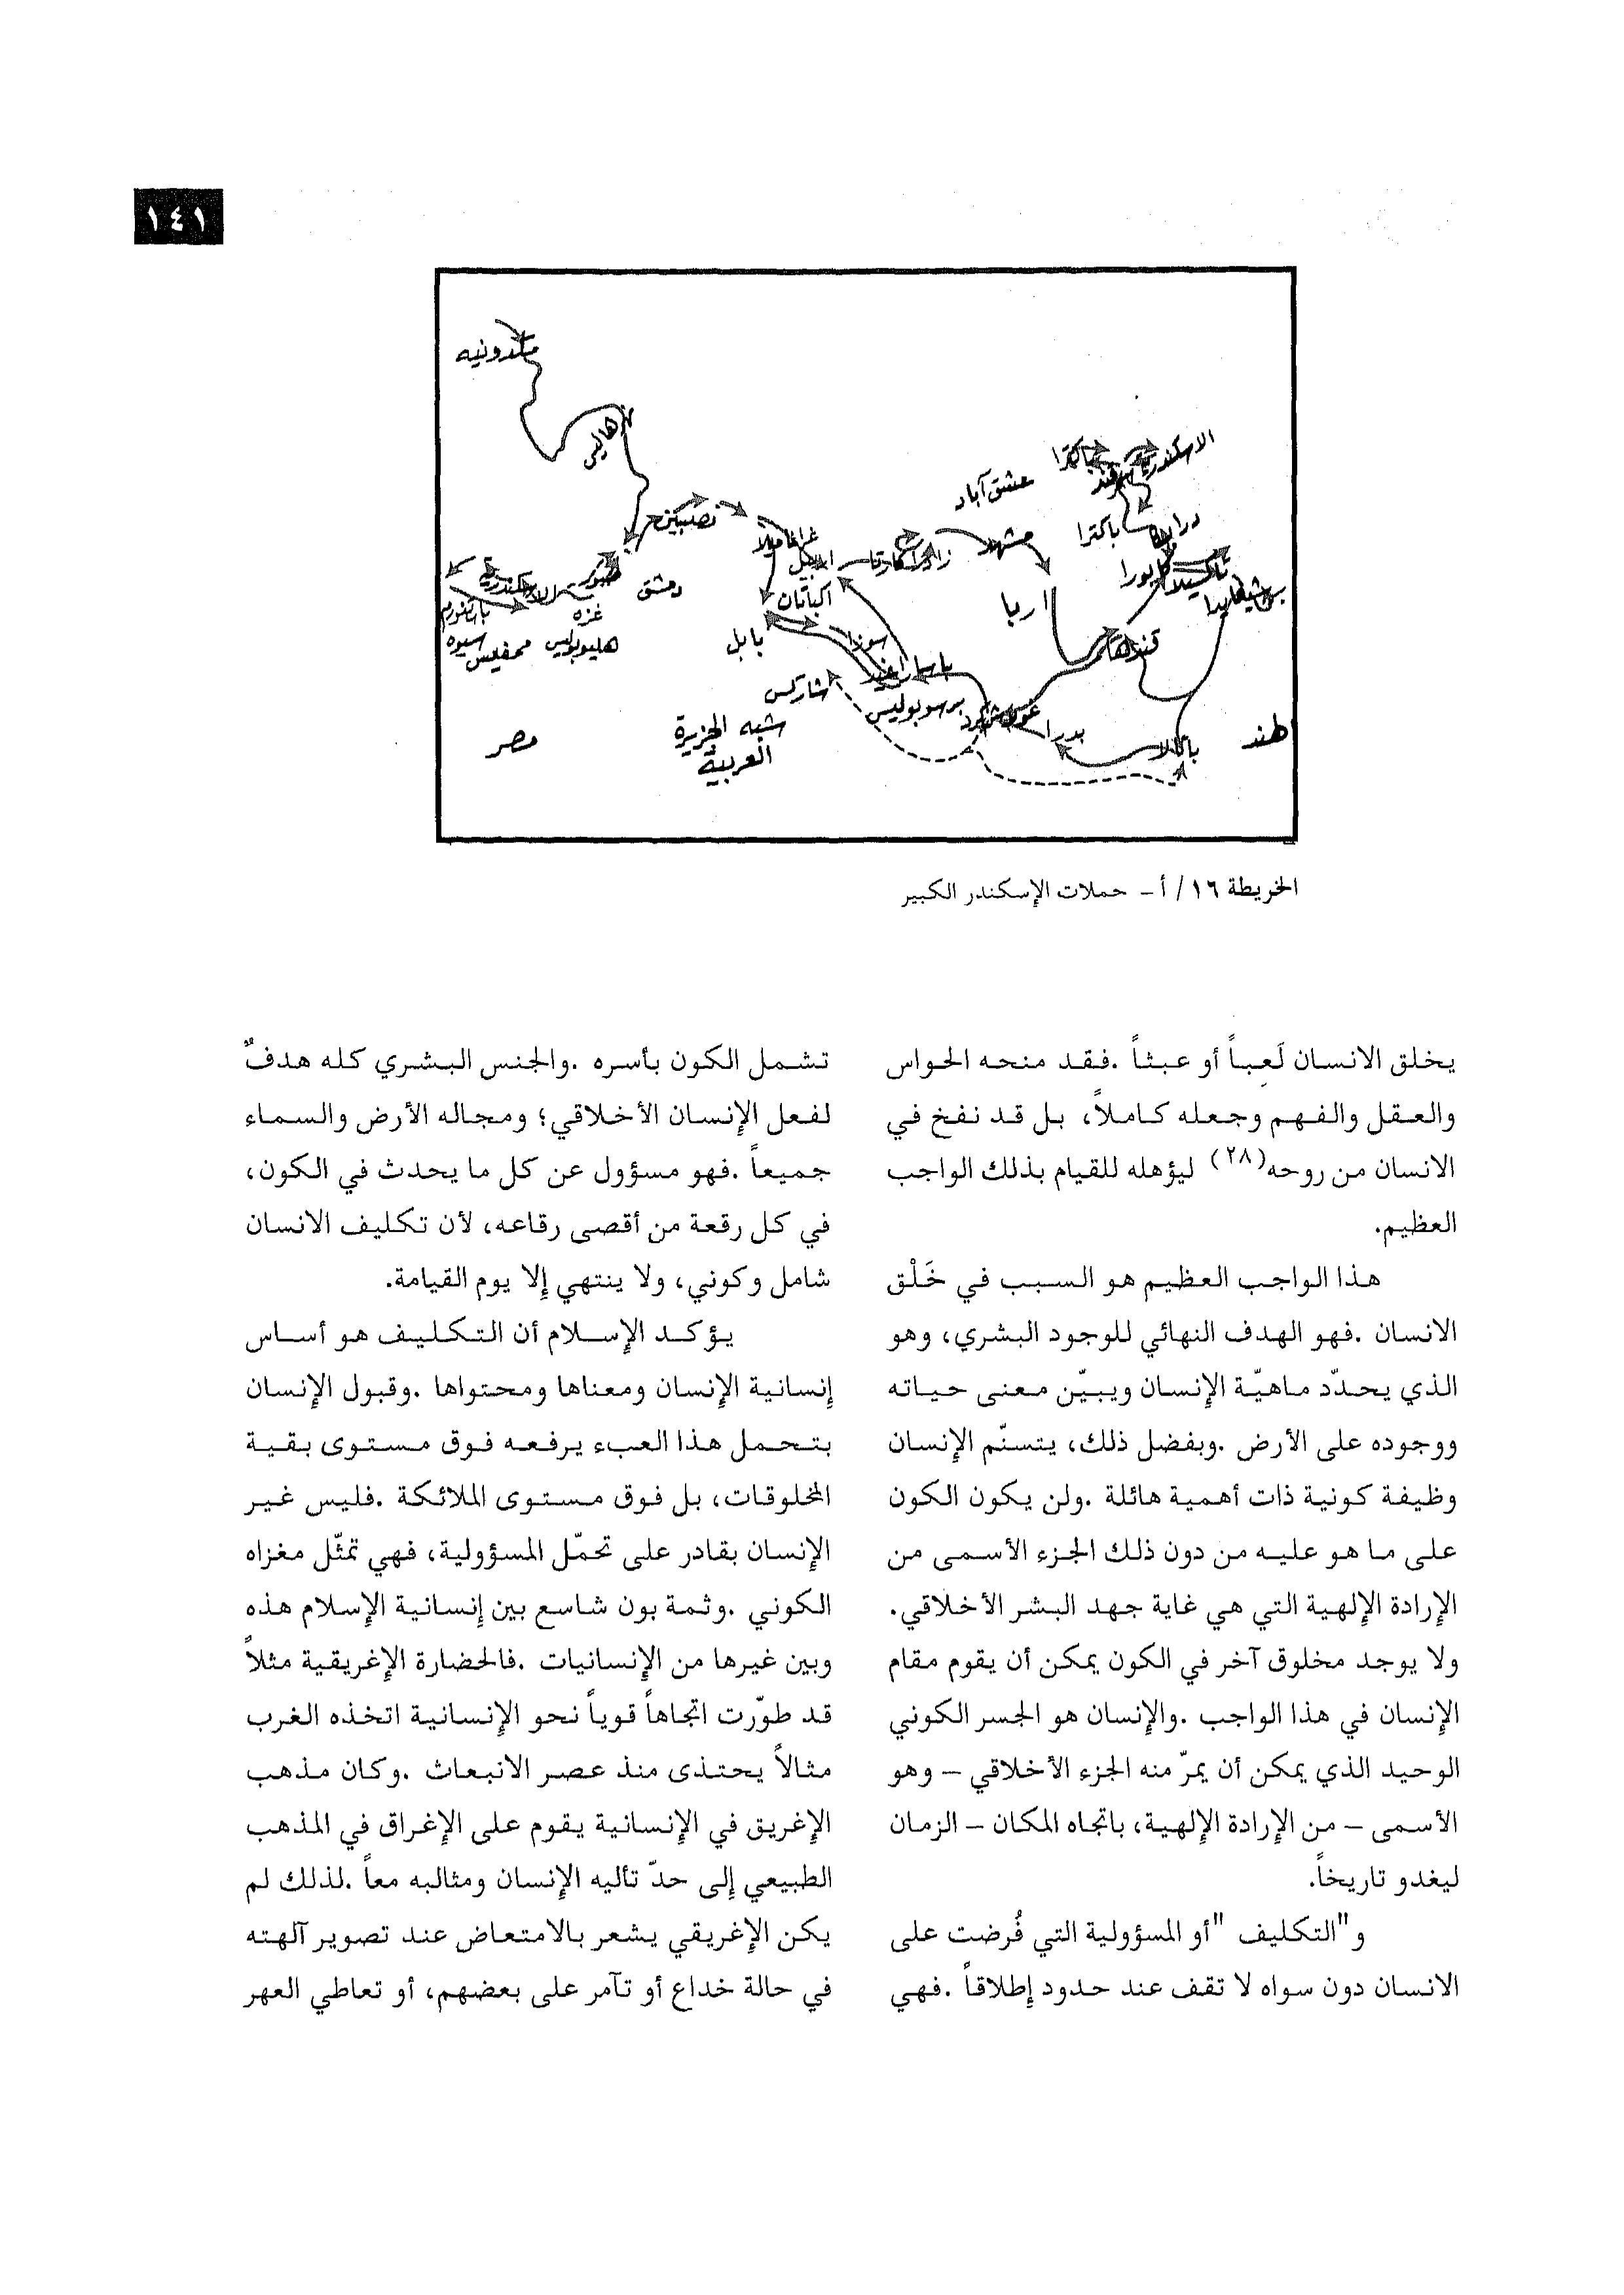 ١٤١
مكدونيه
نهر هاليس
الاسكندرية
باكترا
سمرقند
عشق آباد
نصيبين
غاغاميلا
مشهد
باكترا
اربيل
زادراكارتا
تاكسيلا
صور
الاسكندرية
دمشق
اكباتان
اريا
غزه
سيوه
ممفيس
هليوبوليس
بابل
سوزا
قندهار
شاركس
برسوبوليس
مصر
شبه الجزيرة
العربية
بورا
باتالا
هند
الخريطة ١٦/ أ – حملات الإسكندر الكبير
يخلق الانسان لَعِباً أو عبثاً .فقد منحه الحواس
والعقل والفهم وجعله كاملاً، بل قد نفخ في
الانسان من روحه(٢٨) ليؤهله للقيام بذلك الواجب
العظيم.
هذا الواجب العظيم هو السبب في خَلْق
الانسان .فهو الهدف النهائي للوجود البشري، وهو
الذي يحدّد ماهيّة الإنسان ويبيّن معنى حياته
ووجوده على الأرض .وبفضل ذلك، يتسنّم الإنسان
وظيفة كونية ذات أهمية هائلة .ولن يكون الكون
على ما هو عليه من دون ذلك الجزء الأسمى من
الإرادة الإلهية التي هي غاية جهد البشر الأخلاقي.
ولا يوجد مخلوق آخر في الكون يمكن أن يقوم مقام
الإنسان في هذا الواجب .والإنسان هو الجسر الكوني
الوحيد الذي يمكن أن يمرّ منه الجزء الأخلاقي – وهو
الأسمى – من الإرادة الإلهية، باتجاه المكان – الزمان
ليغدو تاريخاً.
و"التكليف "أو المسؤولية التي فُرضت على
الانسان دون سواه لا تقف عند حدود إطلاقاً .فهي
تشمل الكون بأسره .والجنس البشري كله هدفٌ
لفعل الإنسان الأخلاقي؛ ومجاله الأرض والسماء
جميعاً .فهو مسؤول عن كل ما يحدث في الكون،
في كل رقعة من أقصى رقاعه، لأن تكليف الانسان
شامل وكوني، ولا ينتهي إلا يوم القيامة.
يؤكد الإسلام أن التكليف هو أساس
إنسانية الإنسان ومعناها ومحتواها .وقبول الإنسان
بتحمل هذا العبء يرفعه فوق مستوى بقية
المخلوقات، بل فوق مستوى الملائكة .فليس غير
الإنسان بقادر على تحمّل المسؤولية، فهي تمثّل مغزاه
الكوني .وثمة بون شاسع بين إنسانية الإسلام هذه
وبين غيرها من الإنسانيات .فالحضارة الإغريقية مثلاً
قد طوّرت اتجاهاً قوياً نحو الإنسانية اتخذه الغرب
مثالاً يحتذى منذ عصر الانبعاث .وكان مذهب
الإغريق في الإنسانية يقوم على الإغراق في المذهب
الطبيعي إلى حدّ تأليه الإنسان ومثالبه معاً .لذلك لم
يكن الإغريقي يشعر بالامتعاض عند تصوير آلهته
في حالة خداع أو تآمر على بعضهم، أو تعاطي العهر